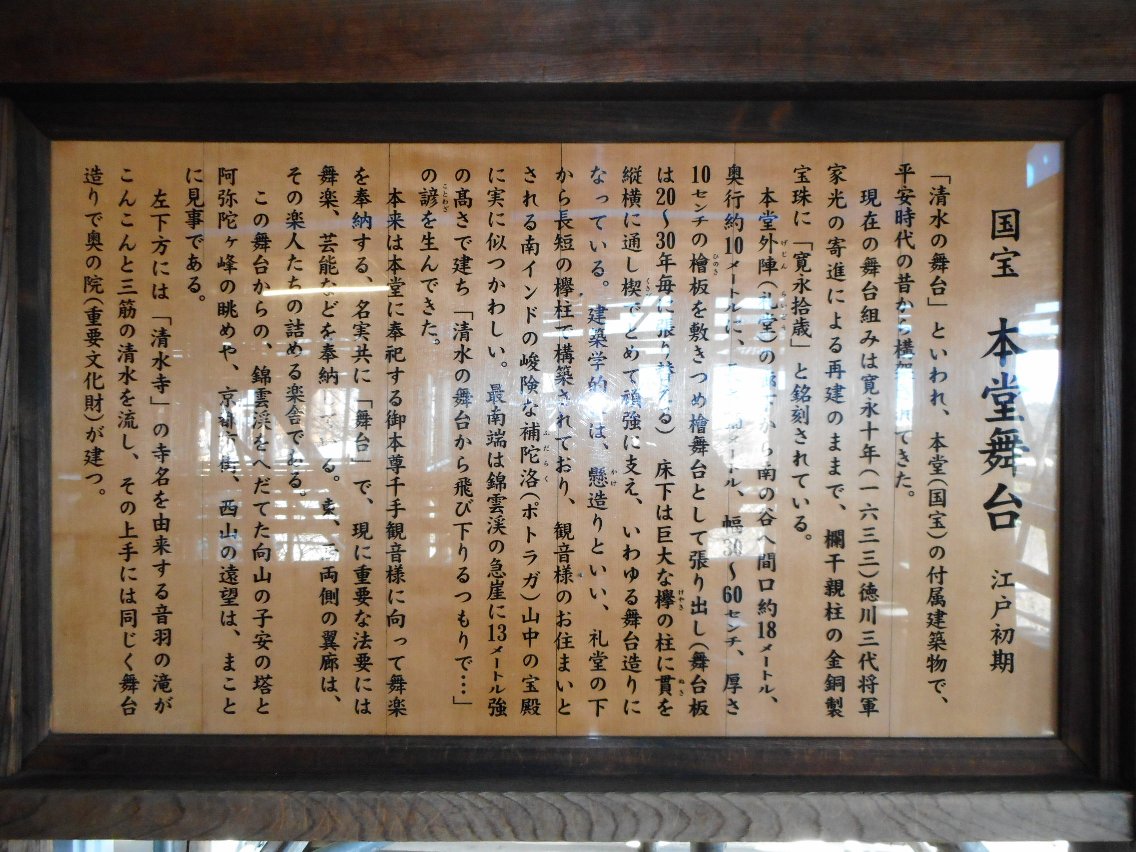 国宝 本堂舞台 江戸初期
「清水の舞台」といわれ、本堂(国宝)の付属建築物で、
平安時代の昔から構架 てきた。
現在の舞台組みは寛永十年(一六三三)徳川三代将軍
家光の寄進による再建のままで、欄干親柱の金銅製
宝珠に「寛永拾歳」と銘刻されている。
本堂外陣(礼堂)の から南の谷へ間口約18メートル、
奥行約10メートルに、 メートル、幅30〜60センチ、厚さ
10センチの檜板を敷きつめ檜舞台として張り出し(舞台板
は20〜30年毎に張り替える) 床下は巨大な欅の柱に貫を
縦横に通し楔でとめて頑強に支え、いわゆる舞台造りに
なっている。建築学的には、懸造りといい、礼堂の下
から長短の欅柱で構築されており、観音様のお住まいと
される南インドの峻険な補陀洛(ポトラガ)山中の宝殿
に実に似つかわしい。最南端は錦雲渓の急崖に13メートル強
の高さで建ち「清水の舞台から飛び下りるつもりで…」
の諺を生んできた。
本来は本堂に奉祀する御本尊千手観音様に向って舞楽
を奉納する、名実共に「舞台」で、現に重要な法要には
舞楽、芸能などを奉納 いる。又、両側の翼廊は、
その楽人たちの詰める楽舎である。
この舞台からの、錦雲渓をへだてた向山の子安の塔と
阿弥陀ヶ峰の眺めや、京都市街、西山の遠望は、まこと
に見事である。
左下方には「清水寺」の寺名を由来する音羽の滝が
こんこんと三筋の清水を流し、その上手には同じく舞台
造りで奥の院(重要文化財)が建つ。